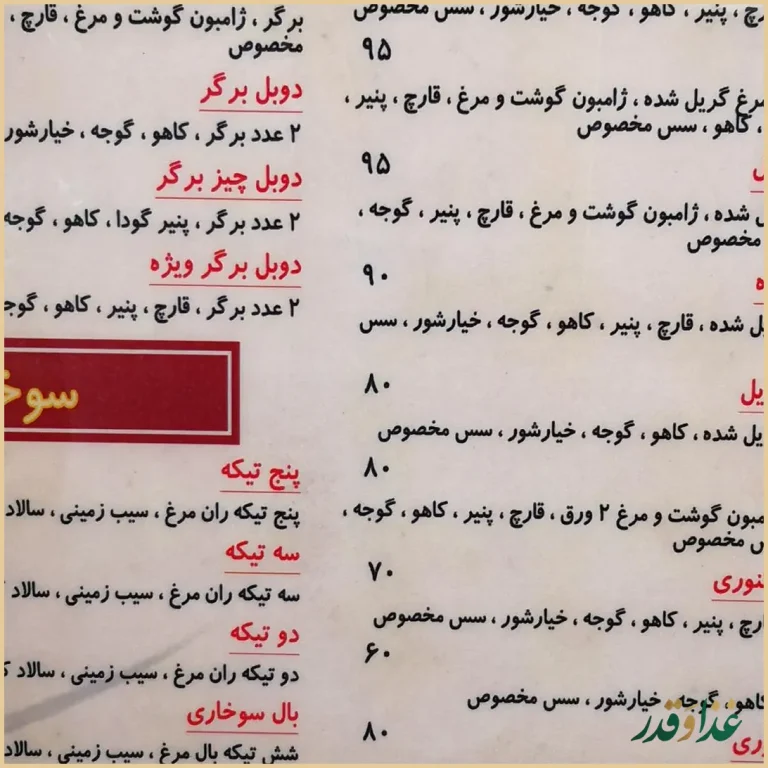 قارچ ، پنیر ، کاهو ، گوجه ، خیارشور ، سس مخصوص
۹۵
مرغ گریل شده ، ژامبون گوشت و مرغ ، قارچ ، پنیر ،
، کاهو ، سس مخصوص
۹۵
شده ، ژامبون گوشت و مرغ ، قارچ ، پنیر ، گوجه ،
مخصوص
۹۰
شده ، قارچ ، پنیر ، کاهو ، گوجه ، خیارشور ، سس
۸۰
شده ، کاهو ، گوجه ، خیارشور ، سس مخصوص
۸۰
گوشت و مرغ ۲ ورق ، قارچ ، پنیر ، کاهو ، گوجه ،
مخصوص
۷۰
، پنیر ، کاهو ، گوجه ، خیارشور ، سس مخصوص
۶۰
کاهو ، گوجه ، خیارشور ، سس مخصوص
۸۰
برگر ، ژامبون گوشت و مرغ ، قارچ ،
مخصوص
دوبل برگر
۲ عدد برگر ، کاهو ، گوجه ، خیارشور
دوبل چیز برگر
۲ عدد برگر ، پنیر گودا ، کاهو ، گوجه
دوبل برگر ویژه
۲ عدد برگر ، قارچ ، پنیر ، کاهو ، گوجه
پنج تیکه
پنج تیکه ران مرغ ، سیب زمینی ، سالاد
سه تیکه
سه تیکه ران مرغ ، سیب زمینی ، سالاد
دو تیکه
دو تیکه ران مرغ ، سیب زمینی ، سالاد
بال سوخاری
شش تیکه بال مرغ ، سیب زمینی ، سالاد
غذاوقدر